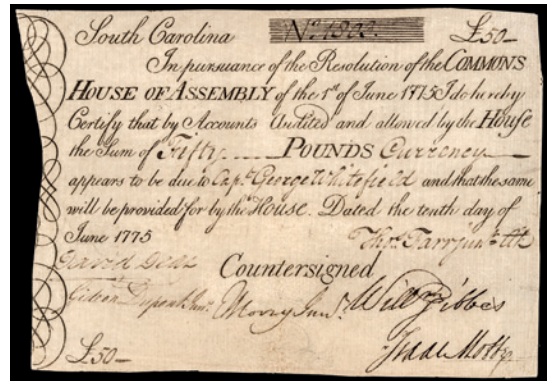 South Carolina No. 1802. £50—
In pursuance of the Resolution of the COMMONS
HOUSE OF ASSEMBLY of the 1st of June 1775 I do hereby
Certify that by Accounts Audited and allowed by the House
the Sum of Fifty POUNDS Currency
appears to be due to Capt. George Whitefield and that the same
will be provided for by the House. Dated the tenth day of
June 1775 Thos. Farr junr. Clk
David Deas Countersigned
Gideon Dupont Junr. Will Gibbes
£50— Isaac Motte